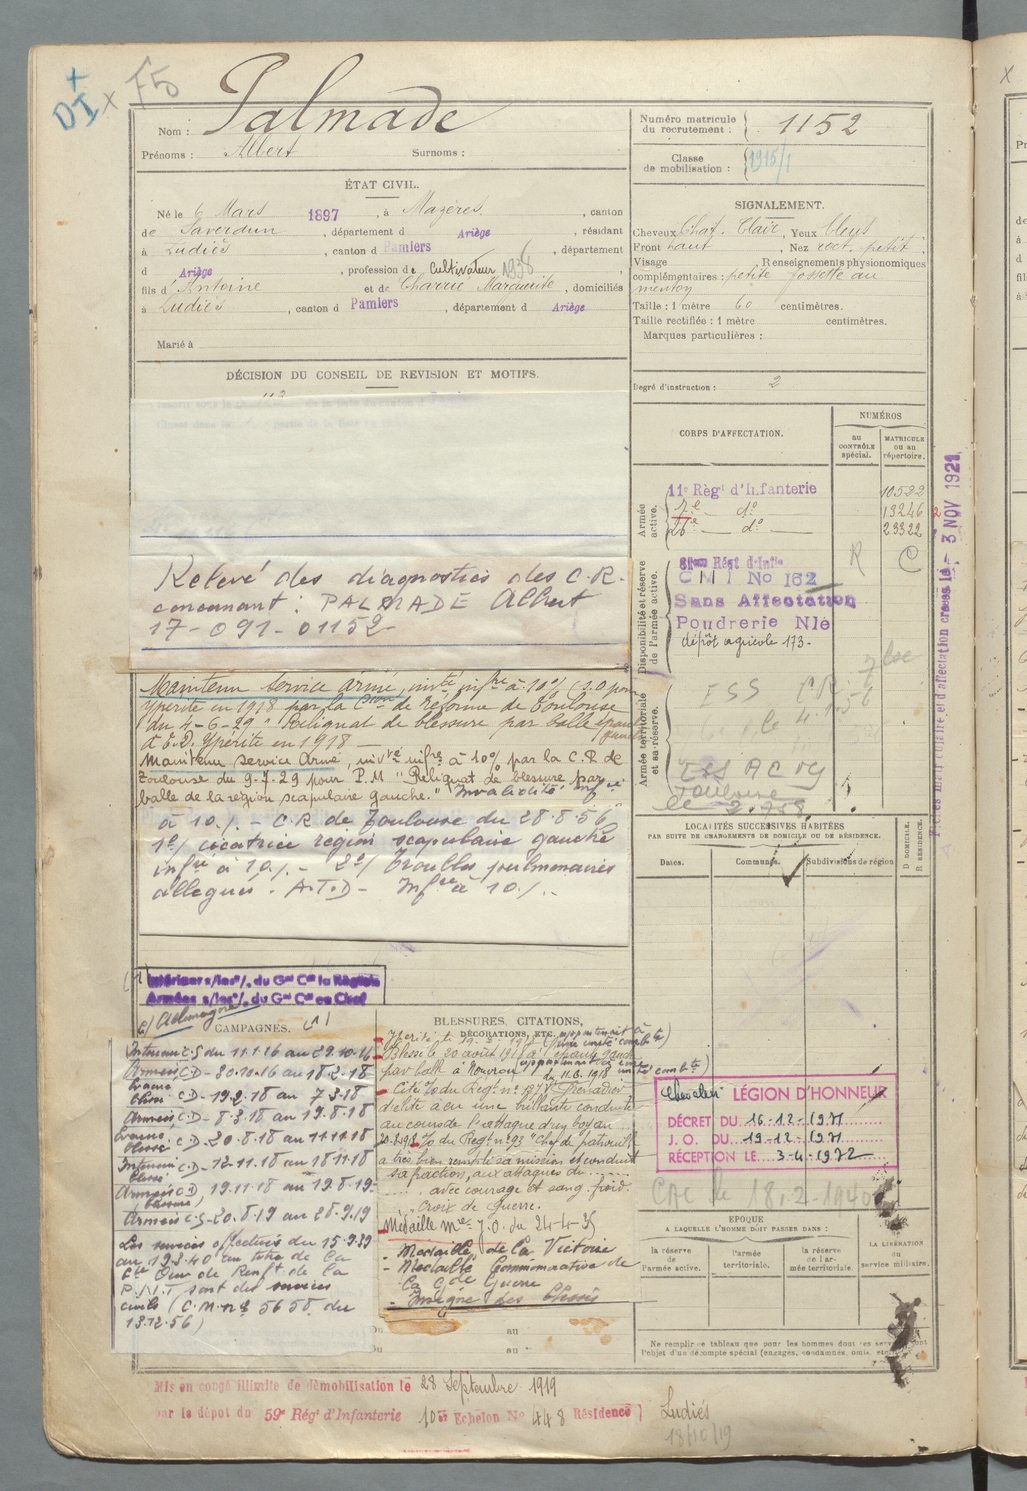 DI x F5
Nom : Palmade
Prénoms : Albert Surnoms :
Numéro matricule du recrutement : 1152
Classe de mobilisation : 1915/1
ÉTAT CIVIL.
Né le 6 Mars 1897, à Mazères, canton
de Saverdun, département d Ariège, résidant
à Ludiès, canton d Pamiers, département
d Ariège, profession de Cultivateur 1938
fils d'Antoine et de Charrie Marguerite, domiciliés
à Ludiès, canton d Pamiers, département d Ariège
Marié à
SIGNALEMENT.
Cheveux Chat. Clair, Yeux bleus
Front haut, Nez rect. petit
Visage, Renseignements physionomiques
complémentaires : petite fossette au
menton
Taille : 1 mètre 60 centimètres.
Taille rectifiée : 1 mètre centimètres.
Marques particulières :
Degré d'instruction : 2
DÉCISION DU CONSEIL DE REVISION ET MOTIFS.
Relevé des diagnostics des C.R.
concernant : PALMADE Albert
17-091-01152-
Maintenu service armé, invté infre à 10% (S.O pour
ypérité en 1918 par la Cion de réforme de Toulouse
du 4-6-29 "Reliquat de blessure par balle épaule
gauche
Ypérité en 1918 —
Maintenu service Armé, invté infre à 10% par la C.R de
Toulouse du 9.7.29 pour P.M "Reliquat de blessure par
balle de la région scapulaire gauche." Invalidité infre
à 10./. - C.R de Toulouse du 28.8.56
1°/ cicatrice région scapulaire gauche
infre à 10./. - 2°/ Troubles pulmonaires
allégués. A.T.D - Infre à 10./.-
CORPS D'AFFECTATION.
NUMÉROS
au CONTRÔLE spécial.
MATRICULE ou au répertoire.
Armée active.
11e Régt d'Infanterie 10532
7e — do — 13246
26e — do — 23322
Disponibilité et réserve de l'armée active.
81ème Régt d'Infie R C
C M I No 162
Sans Affectation
Poudrerie Nle
dépôt agricole 173-
Armée territoriale et sa réserve.
Toulouse
le 2.7.58
3 NOV 1921
LOCALITÉS SUCCESSIVES HABITÉES
PAR SUITE DE CHANGEMENTS DE DOMICILE OU DE RÉSIDENCE.
Dates. Communes. Subdivisions de région D DOMICILE. R RÉSIDENCE.
Intérieur s/les o/. du Gal Ct la Région
Armées s/les o/. du Gal Ct en Chef
c/ Allemagne
CAMPAGNES. (1)
Intérieur C.S du 11.1.16 au 29.10.16
Armées C.D - 30.10.16 au 18.2.18
Evacué blessé C.D - 19.2.18 au 7.3.18
Armées C.D - 8.3.18 au 19.8.18
Evacué blessé C.D - 20.8.18 au 11.11.18
Intérieur blessé C.D - 12.11.18 au 18.11.18
Armées C.D 19.11.18 au 19.8.19
Armées C.S - 20.8.19 au 28.9.19
Les services effectués du 15.9.39
au 19.3.40 au titre de la
Cie Ouv de Renft de la
P.N.T sont des services
civils (C.M. no 5655 du
13.12.56)
BLESSURES, CITATIONS,
DÉCORATIONS, ETC.
Ypérité le 19.2.1918 (appartenait à une unité combtte)
Blessé le 20 août 1918 à l'épaule gauche
par balle à Nouvron (appartenant à une unité combtte)
Cité à l'o/ du Régt no 197 du 11.6.1918 "Grenadier
d'élite a eu une brillante conduite
au cours de l'attaque d'un boyau
o/ du Régt no 93 "Chef de patrouille
a très bien rempli sa mission et conduit
sa fraction, aux attaques du ......
...... avec courage et sang froid.
Croix de Guerre.
Médaille mre J.O. du 24-4-35
- Médaille de la Victoire
- Médaille Commémorative de
la Gde Guerre
- Insigne des blessés
Du au
Du au
Chevalier LÉGION D'HONNEUR
DÉCRET DU 16-12-1971
J. O. DU 19-12-1971
RÉCEPTION LE 3-4-1972
EPOQUE
A LAQUELLE L'HOMME DOIT PASSER DANS :
la réserve de l'armée active.
l'armée territoriale.
la réserve de l'armée territoriale.
DATE DE LA LIBÉRATION du service militaire.
Ne remplir ce tableau que pour les hommes dont les services font
l'objet d'un décompte spécial (engagés, condamnés, omis, etc.)
Mis en congé illimité de démobilisation le 28 Septembre 1919
par le dépôt du 59e Régt d'Infanterie 10e Echelon No 448 Résidence } Ludiès
18/10/19